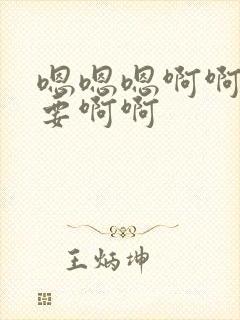 嗯嗯嗯啊啊
要啊啊
王炳坤